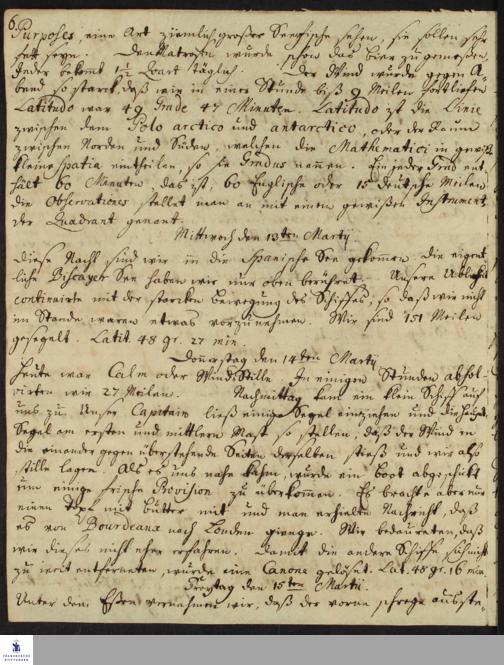 6.
Purposes, eine Art ziemlich großer Seefische sehen, sie sollen sehr
fett seyn. Den Matrosen wurde schon das bier zugemessen.
Jeder bekomt 1½ Quart täglich. Der Wind wurde gegen A-
bend so starck, daß wir in einer Stunde biß 9 Meilen fortliefen
Latitudo war 49 Grade 47 Minuten. Latitudo ist die Linie
zwischen dem Polo arctico und antarctico, oder der Raum
zwischen Norden und Süden, welchen die Mathematici in gewiße
kleine spatia eintheilen, so sie Gradus nennen. Ein jeder Grad ent-
hält 60 Minuten, das ist, 60 Englische oder 15 deutsche Meilen
die Observationes stellet man an mit einem gewißen Instrument,
der Quadrant genant.
Mittwoch den 13ten Martij
Diese Nacht sind wir in die Spanische See gekommen. die eigent-
liche Biscayer See haben wir nur oben berühret. Unsere
continuirte mit der starcken bewegung des Schiffes, so daß wir nicht
im Stande waren etwas vorzunehmen. Wir sind 151 Meilen
gesegelt. Latit. 48 gr. 27 min.
Donnerstag den 14ten Martij
Heute war Calm oder Wind-Stille. In einigen Stunden absol-
virten wir 27 Meilen. Nachmittag kam ein klein Schiff auf
uns zu. Unser Capitain ließ einige Segel einziehen und die
Segel am ersten und mittlern Mast so stellen, daß der Wind in
die einander gegen überstehende Seiten derselben stieß und wir also
stille lagen. Als es uns nahe kahm, wurde ein boot abgeschickt
um einige frische Provision zu überkommen. Es brachte aber nur
einen Topf mit butter mit und man erhielte Nachricht, daß
es von Bourdeaux nach London gienge. Wir bedaureten, daß
wir dieses nicht eher erfahren. Damit die andern Schiffe sich nicht
zu weit entferneten, wurde eine Canone gelöset. Lat. 48 gr. 16 min.
Freytag den 15ten Martij.
Unter dem Eßen vernahmen wir, daß der vorne schrege
FRANCKESCHE STIFTUNGEN